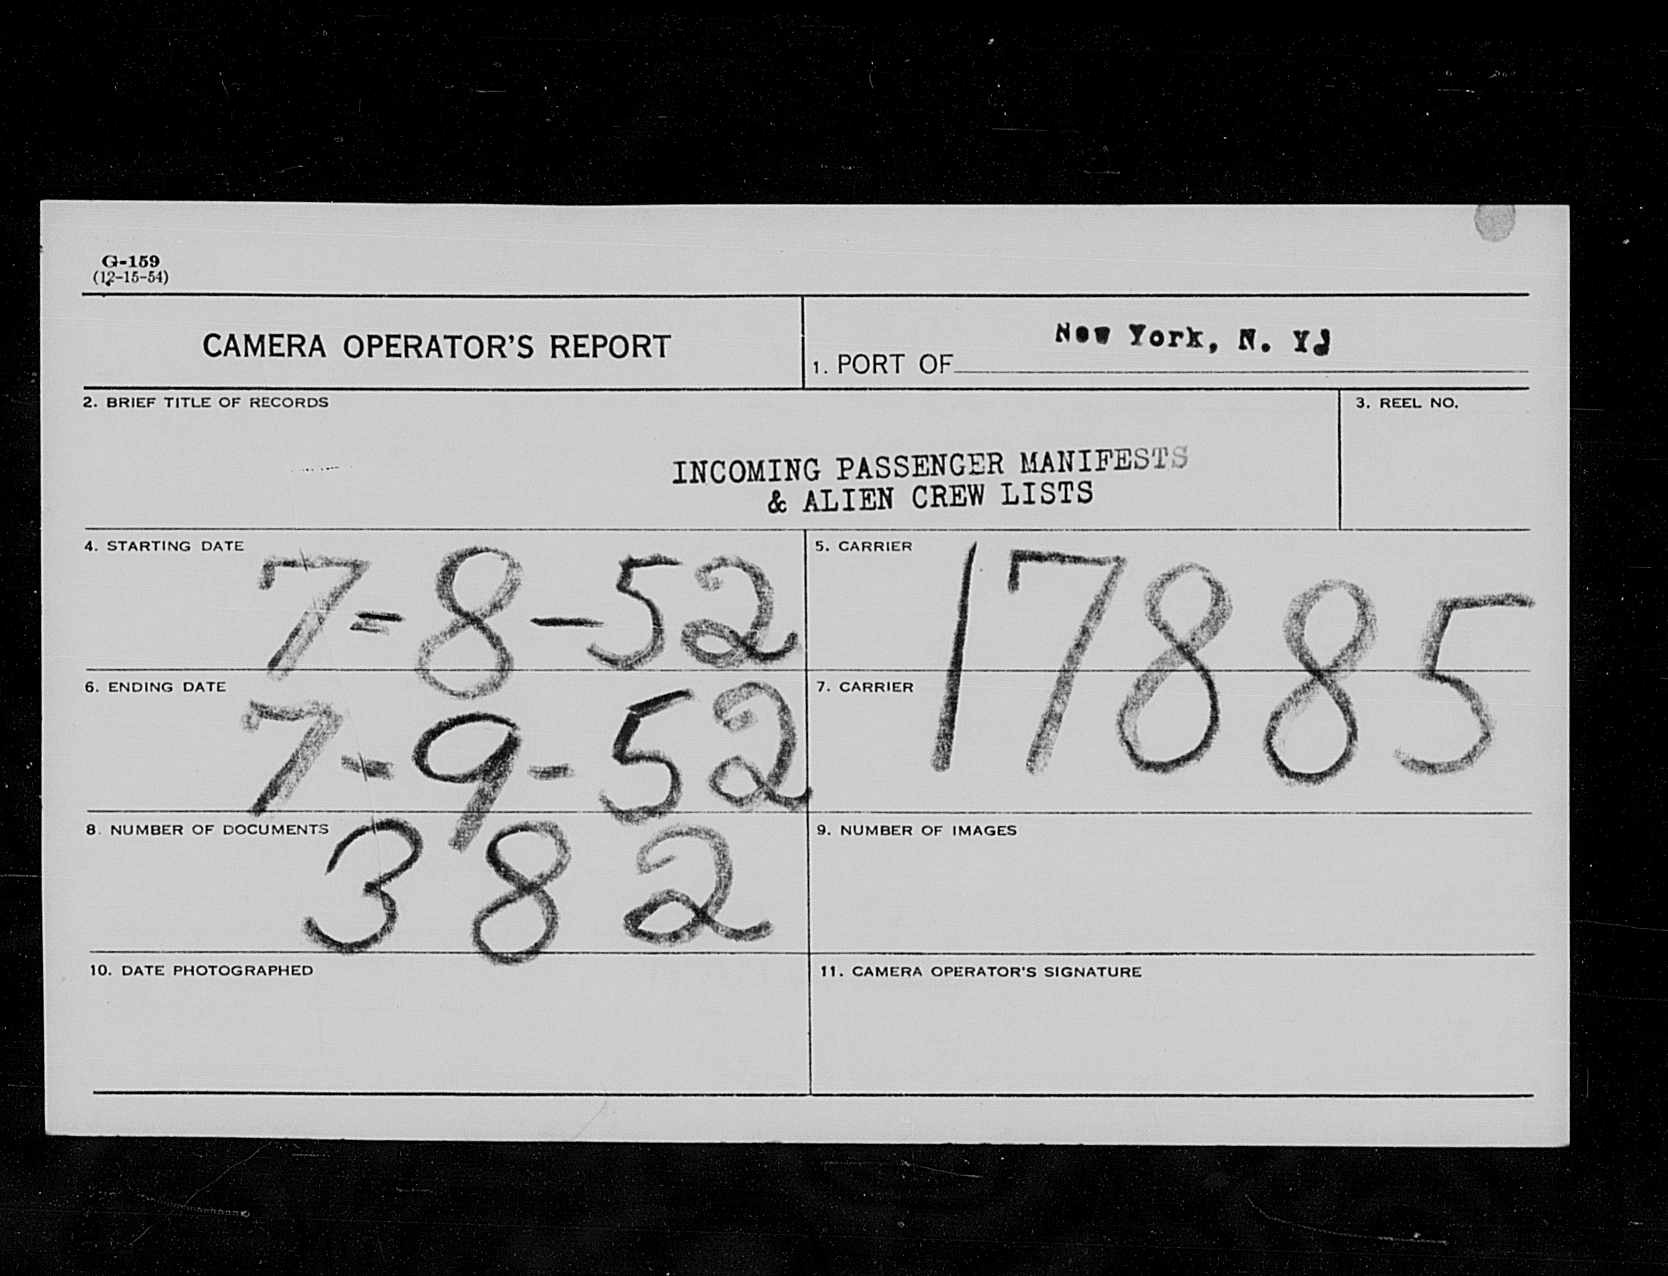 G-159
(12-15-54)
CAMERA OPERATOR'S REPORT
1. PORT OF New York, N. Y.
2. BRIEF TITLE OF RECORDS
3. REEL NO.
INCOMING PASSENGER MANIFESTS
& ALIEN CREW LISTS
4. STARTING DATE 7-8-52
5. CARRIER
17885
6. ENDING DATE 7-9-52
7. CARRIER
8. NUMBER OF DOCUMENTS 382
9. NUMBER OF IMAGES
10. DATE PHOTOGRAPHED
11. CAMERA OPERATOR'S SIGNATURE